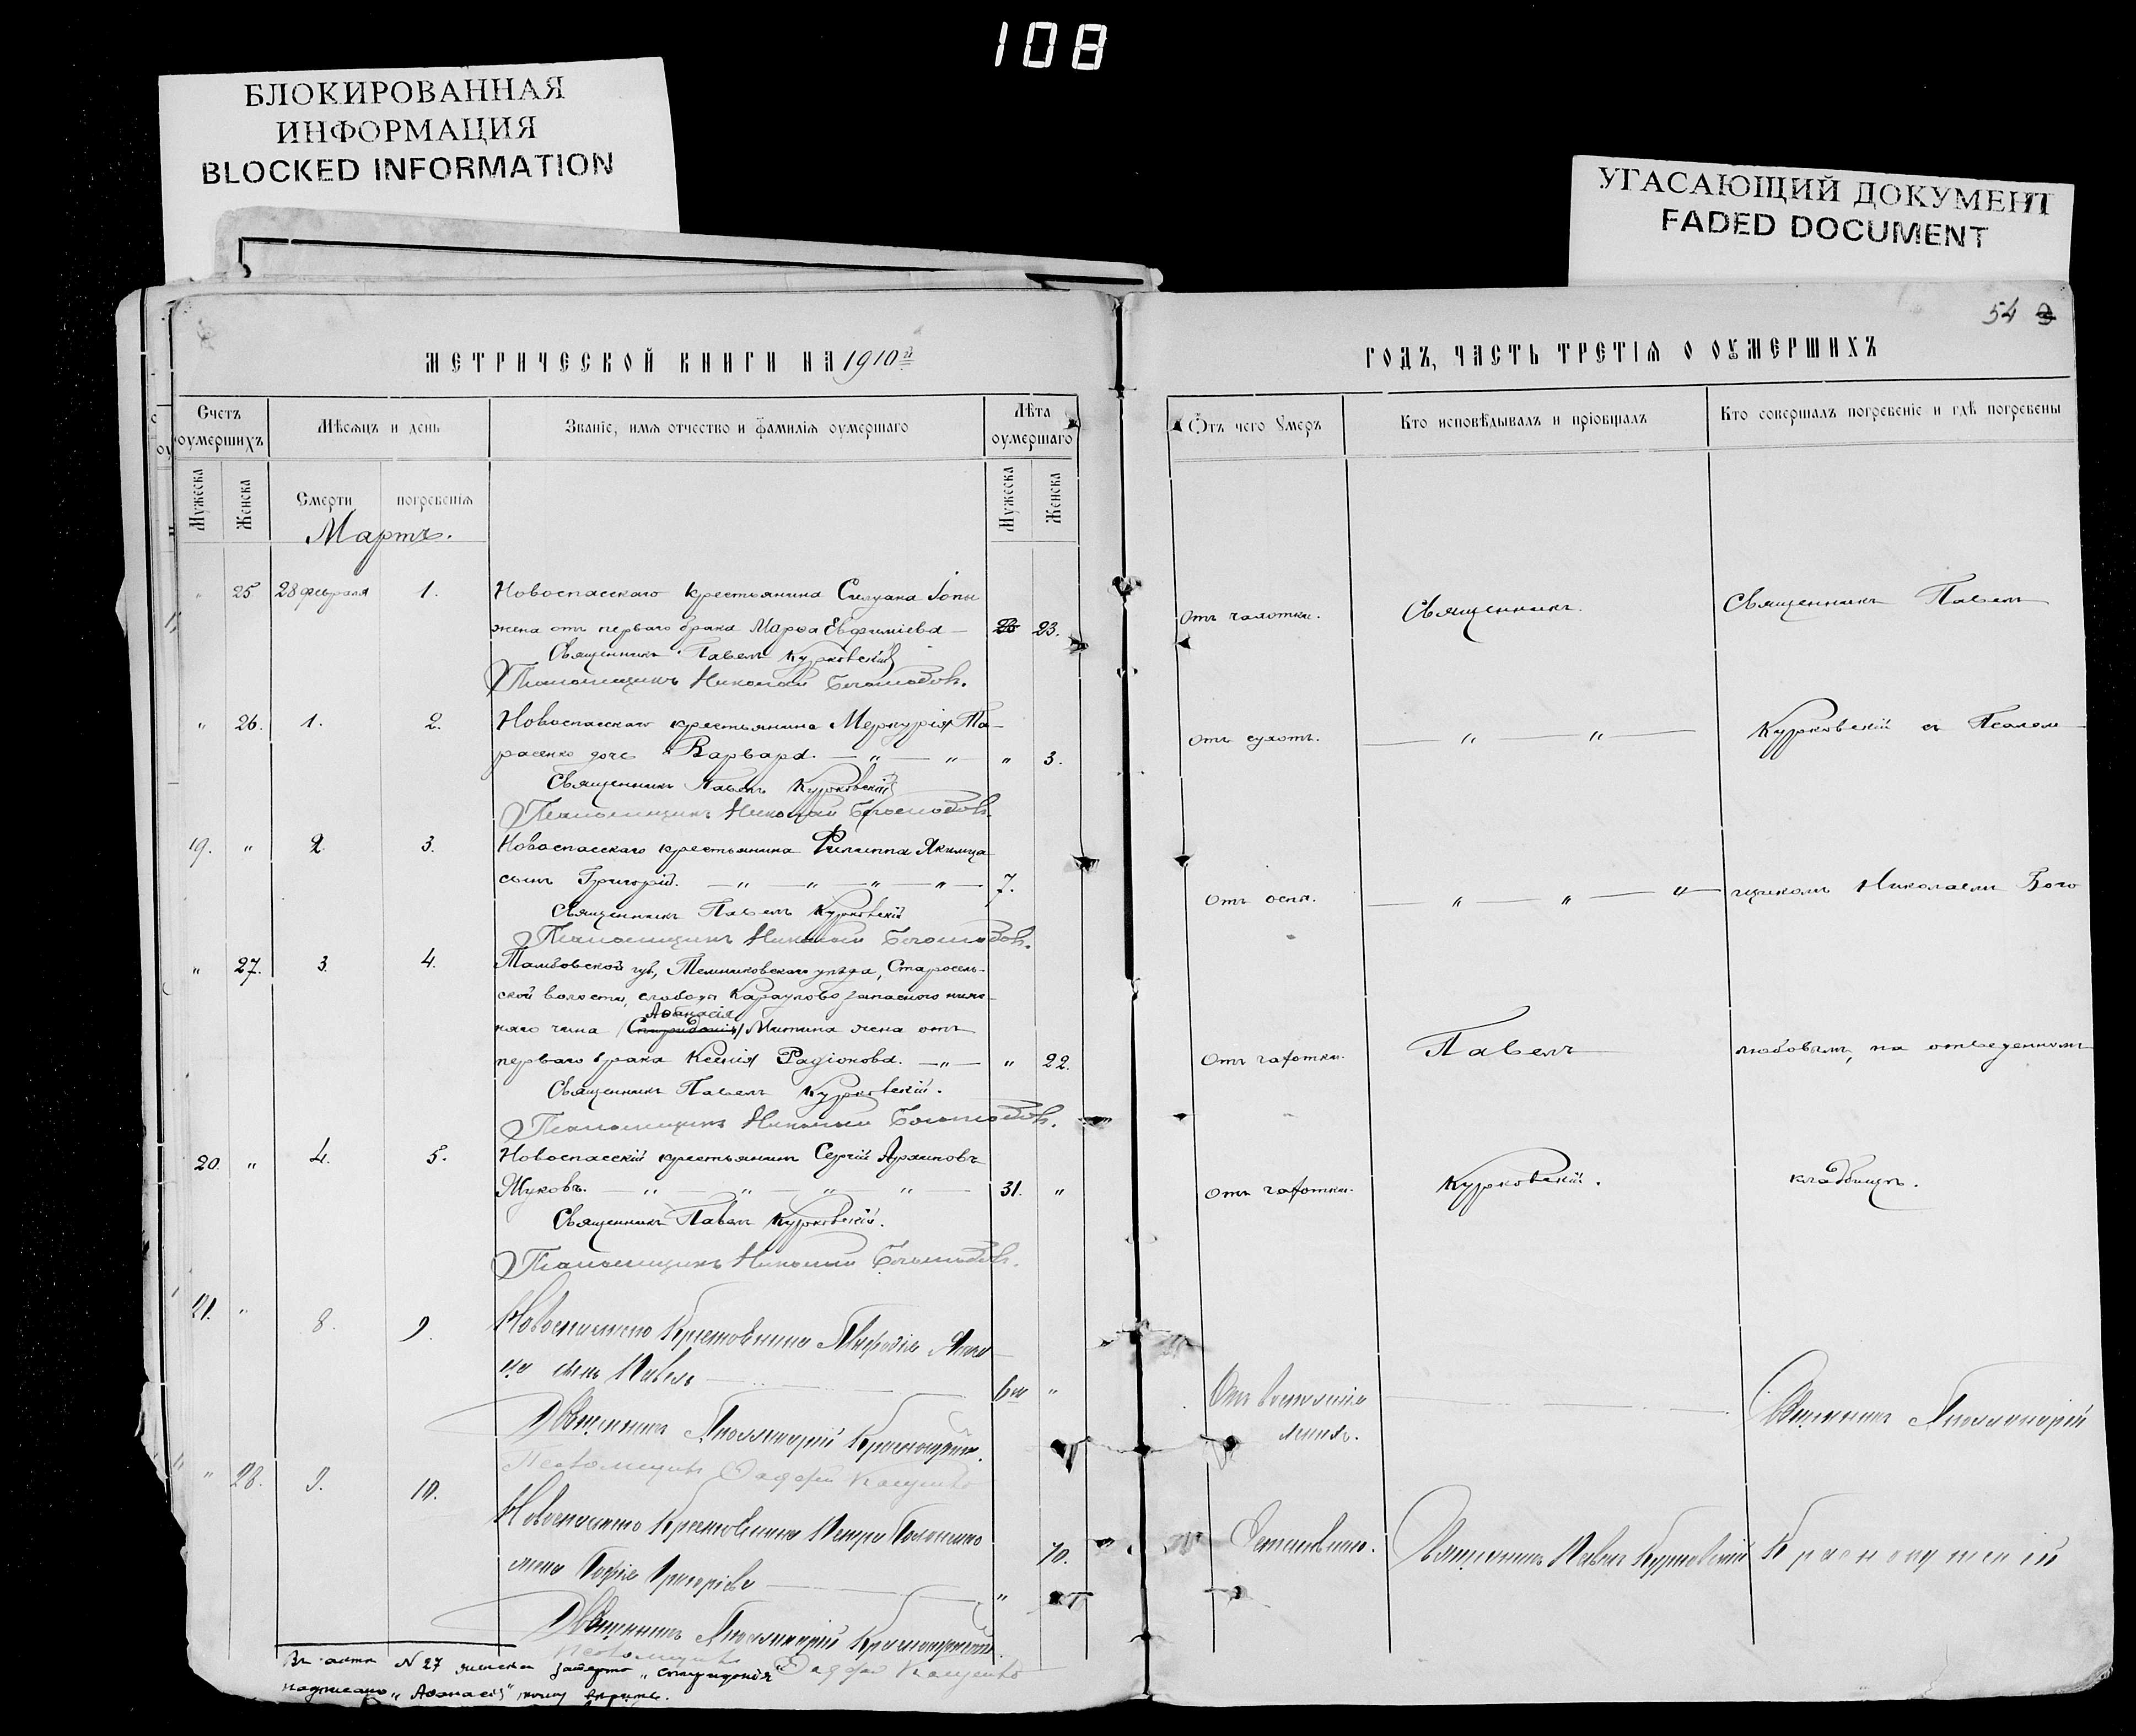 108
БЛОКИРОВАННАЯ
ИНФОРМАЦИЯ
BLOCKED INFORMATION
УГАСАЮЩИЙ ДОКУМЕНТ
FADED DOCUMENT
54 3
МЕТРИЧЕСКОЙ КНИГИ НА 1910й
Счетъ оумершихъ
Мѣсяцъ и день
Званіе, имя отчество и фамилія оумершаго
Лѣта оумершаго
Мужеска
Женска
Смерти
погребенія
Мужеска
Женска
Мартъ.
" 25 28 февраля 1. Новоспасскаго крестьянина Силуана Іоны
жена отъ перваго брака Марѳа Евфиміева — 23.
Священникъ Павелъ Курковскій
Псаломщикъ Николай Боголюбовъ.
" 26. 1. 2. Новоспасскаго крестьянина Меркурія Та-
расенко дочь Варвара. — " — " — " 3.
Священникъ Павелъ Курковскій
Псаломщикъ Николай Боголюбовъ.
19. " 2. 3. Новоспасскаго крестьянина Филиппа Якимца
сынъ Григорій. — " — " — " — " — 7.
Священникъ Павелъ Курковскій
Псаломщикъ Николай Боголюбовъ.
" 27. 3. 4. Тамбовской губ, Темниковскаго уѣзда, Старосель-
ской волости, слободы Караулово запаснаго ниж-
Аѳанасія
няго чина (Спиридонія) Митина жена отъ
перваго брака Ксенія Радіонова. — " — " 22.
Священникъ Павелъ Курковскій.
Псаломщикъ Николай Боголюбовъ.
20. " 4. 5. Новоспасскій крестьянинъ Сергій Архиповъ
Жуковъ. — " — " — " — " — 31. "
Священникъ Павелъ Курковскій.
Псаломщикъ Николай Боголюбовъ.
21. " 8. 9. Новоспасскаго Крестьянина
сынъ Павелъ — "
Священникъ Аполлинарій
Псаломщикъ
" 28. 9. 10. Новоспасскаго Крестьянина Петра
жена Софія Григоріева — " 70.
Священникъ Аполлинарій
Псаломщикъ
Въ актѣ N 27 женска зачерто „Спиридонія"
надписано „Аѳанасія" тому вѣрить.
ГОДЪ, ЧАСТЬ ТРЕТІЯ О ОУМЕРШИХЪ
Отъ чего Умеръ
Кто исповѣдывалъ и пріобщалъ
Кто совершалъ погребеніе и гдѣ погребены
Отъ чахотки. Священникъ Священникъ Павелъ
Отъ сухотъ. — " — " — Курковскій съ Псалом-
Отъ оспы. — " — " — " — щикомъ Николаемъ Бого
Отъ чахотки. Павелъ любовымъ, на отведенномъ
Отъ чахотки. Курковскій. кладбищѣ.
Отъ воспаленія
легкихъ.
Священникъ Аполлинарій
Священникъ Павелъ Курковскій